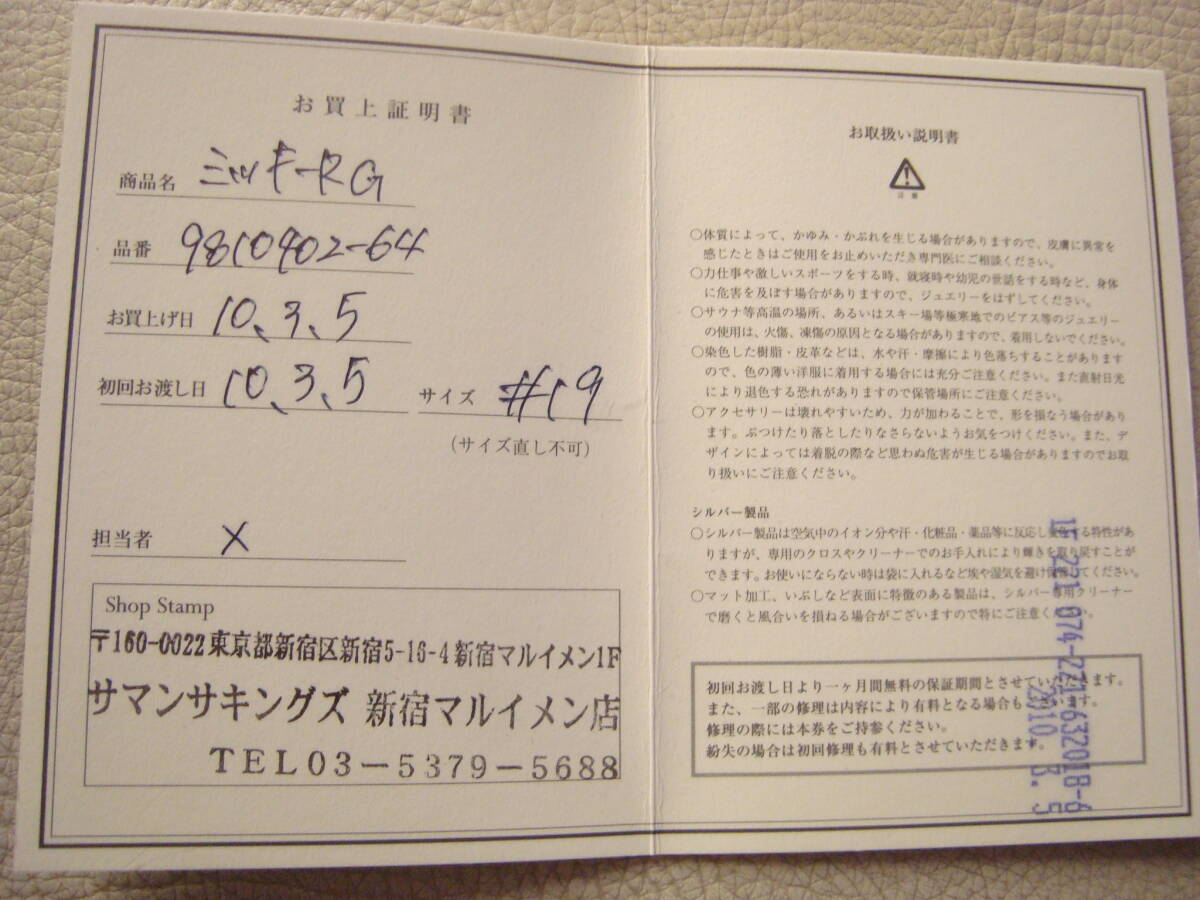 お買上証明書
商品名 ミッキーRG
品番 9810902-64
お買上げ日 10、3、5
初回お渡し日 10、3、5 サイズ #19
（サイズ直し不可）
担当者 X
Shop Stamp
〒160-0022 東京都新宿区新宿5-16-4 新宿マルイメン1F
サマンサキングズ 新宿マルイメン店
TEL03－5379－5688
お取扱い説明書
注意
○体質によって、かゆみ・かぶれを生じる場合がありますので、皮膚に異常を
感じたときはご使用をお止めいただき専門医にご相談ください。
○力仕事や激しいスポーツをする時、就寝時や幼児の世話をする時など、身体
に危害を及ぼす場合がありますので、ジュエリーをはずしてください。
○サウナ等高温の場所、あるいはスキー場等極寒地でのピアス等のジュエリー
の使用は、火傷、凍傷の原因となる場合がありますので、着用しないでください。
○染色した樹脂・皮革などは、水や汗・摩擦により色落ちすることがあります
ので、色の薄い洋服に着用する場合には充分ご注意ください。また直射日光
により退色する恐れがありますので保管場所にご注意ください。
○アクセサリーは壊れやすいため、力が加わることで、形を損なう場合があり
ます。ぶつけたり落としたりなさらないようお気をつけください。また、デ
ザインによっては着脱の際など思わぬ危害が生じる場合がありますのでお取
り扱いにご注意ください。
シルバー製品
○シルバー製品は空気中のイオン分や汗・化粧品・薬品等に反応し変色する特性があ
りますが、専用のクロスやクリーナーでのお手入れにより輝きを取り戻すことが
できます。お使いにならない時は袋に入れるなど埃や湿気を避け保管してください。
○マット加工、いぶしなど表面に特徴のある製品は、シルバー専用クリーナー
で磨くと風合いを損ねる場合がございますので特にご注意ください。
初回お渡し日より一ヶ月間無料の保証期間とさせていただきます。
また、一部の修理は内容により有料となる場合もございます。
修理の際には本券をご持参ください。
紛失の場合は初回修理も有料とさせていただきます。
221 074-2211632018-6
2010. 3. 5